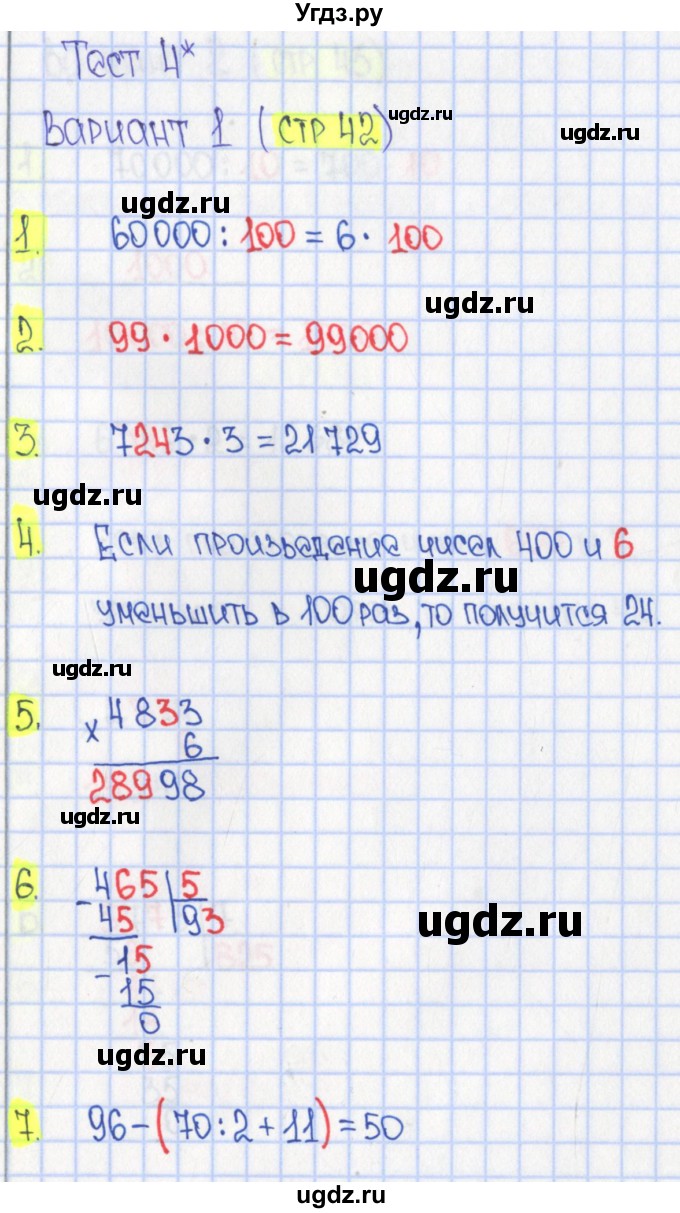 Угдз.ру
Тест 4*
Вариант 1 (стр 42)
ugdz.ru
ugdz.ru
1. 60000 : 100 = 6 · 100
ugdz.ru
2. 99 · 1000 = 99000
3. 7243 · 3 = 21729
ugdz.ru
4. Если произведение чисел 400 и 6
ugdz.ru
уменьшить в 100 раз, то получится 24.
ugdz.ru
5. × 4833
6
28998
ugdz.ru
6. - 465 | 5
45 | 93
ugdz.ru
- 15
15
0
ugdz.ru
7. 96 - (70 : 2 + 11) = 50
ugdz.ru